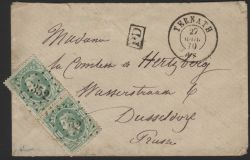 TERNATH
27
70
P.D.
Madame
la Comtesse de Hertzberg
Wasserstrasse 6
Dusseldorf
Prusse